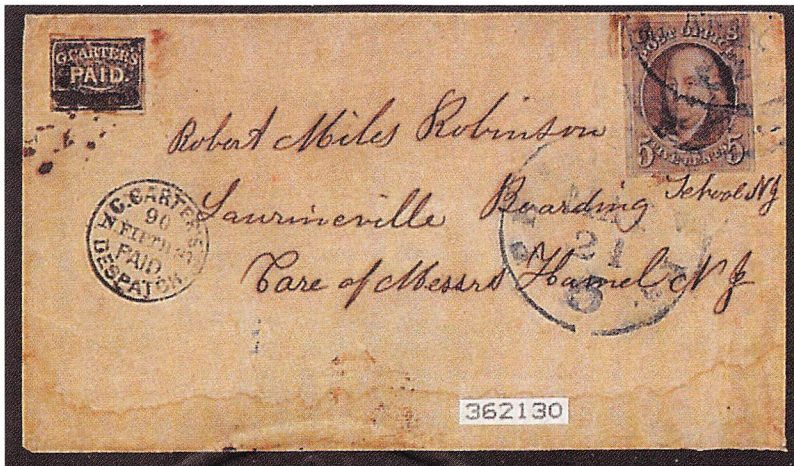 G.CARTER'S
PAID.
U S
POST OFFICE
5 FIVE CENTS 5
Robert Miles Robinson
Laurineville Boarding School NJ
Care of Messrs Hamel NJ
G.CARTER'S
90
N.FIFTH St
PAID
DESPATCH
21
5
362130